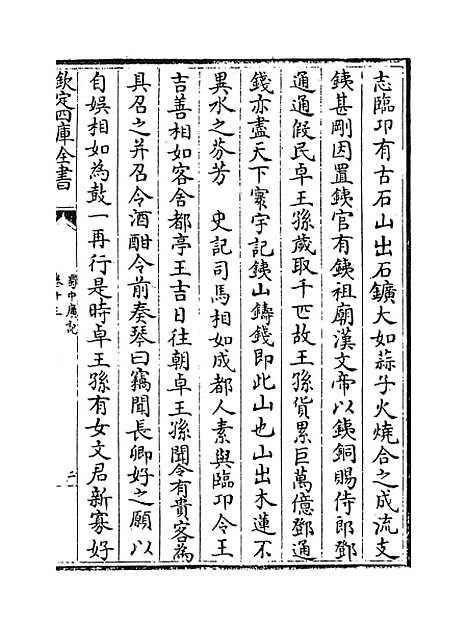 志臨邛有古石山出石鑛大如蒜子火燒合之成流支
鐵甚剛因置鐵官有鐵祖廟漢文帝以鐵銅賜侍郎鄧
通通假民卓王孫歲取千匹故王孫貨累巨萬億鄧通
錢亦盡天下寰宇記鐵山鑄錢即此山也山出木蓮不
異水之芬芳　史記司馬相如成都人素與臨邛令王
吉善相如客舍都亭王吉日往朝卓王孫聞令有貴客為
具召之并召令酒酣令前奏琴曰竊聞長卿好之願以
自娛相如為鼓一再行是時卓王孫有女文君新寡好
欽定四庫全書
蜀中廣記
卷十三
二